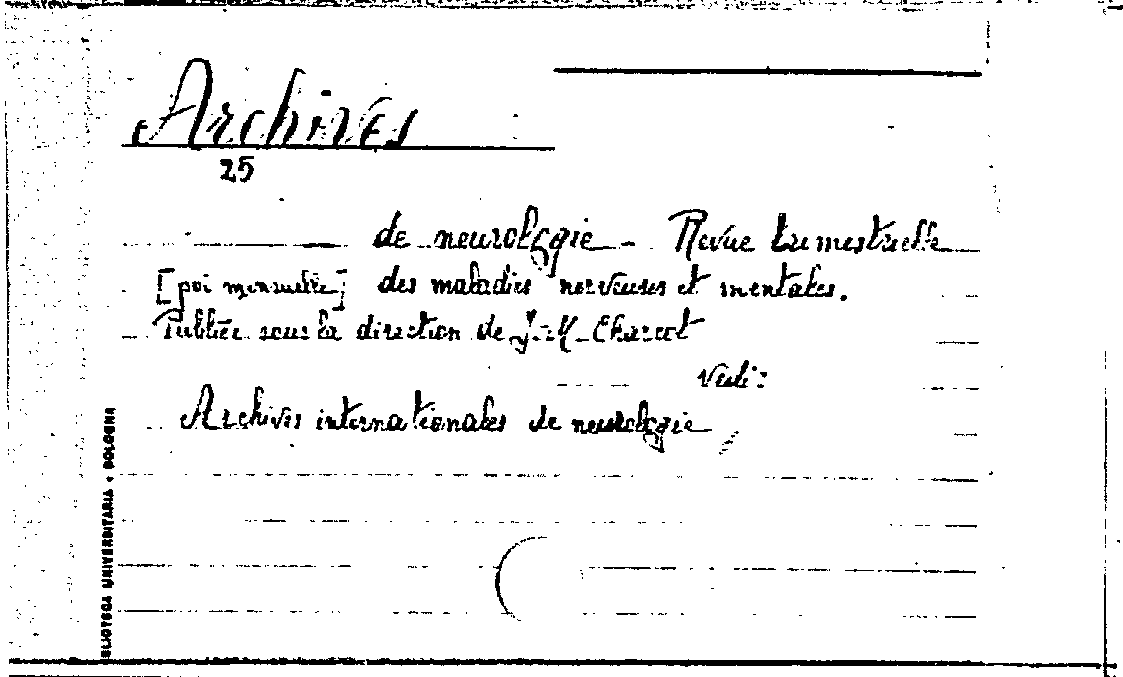 Archives
25
de neurologie - Revue trimestrielle
[poi mensuelle] des maladies nerveuses et mentales.
Publiée sous la direction de J.-M. Charcot
Vedi:
Archives internationales de neurologie
BIBLIOTECA UNIVERSITARIA - BOLOGNA